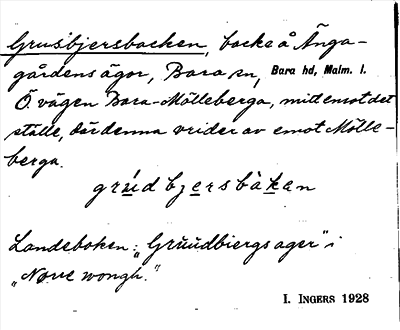 Grusbjersbacken, backe å Änga-
gårdens ägor, Bara sn, Bara hd, Malm. l.
Ö. vägen Bara-Mölleberga, mitt emot det
ställe, där denna vrider av emot Mölle-
berga.
grúd bjersbàkan
Landeboken: "Gruudbiergs ager" i
"Nørre wongh."
I. INGERS 1928